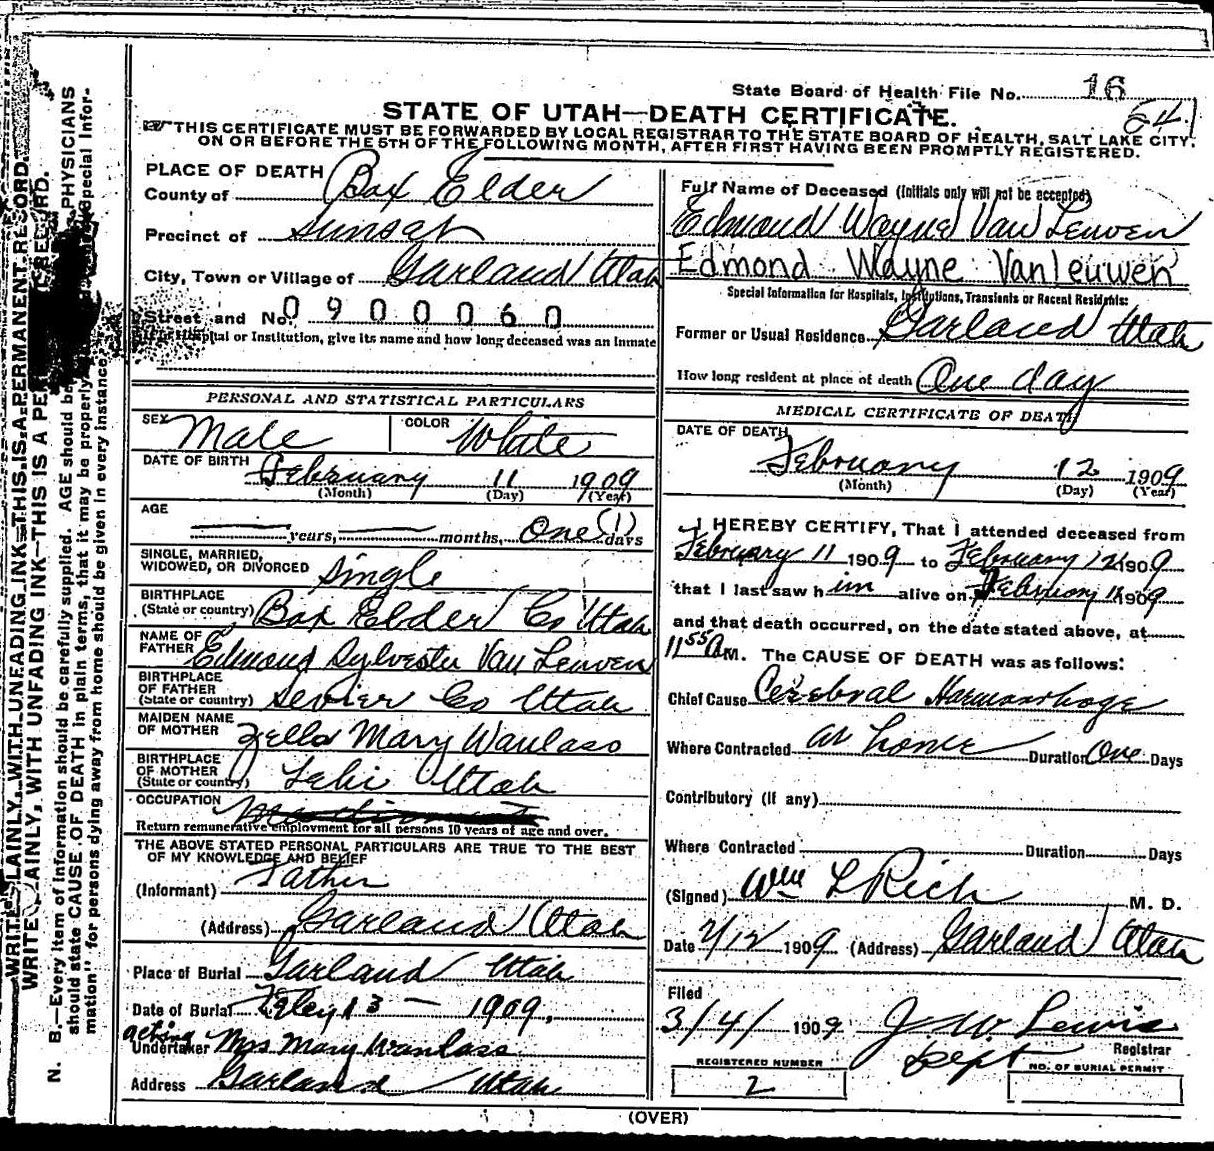 State Board of Health File No. 16
64
STATE OF UTAH—DEATH CERTIFICATE.
THIS CERTIFICATE MUST BE FORWARDED BY LOCAL REGISTRAR TO THE STATE BOARD OF HEALTH, SALT LAKE CITY,
ON OR BEFORE THE 5TH OF THE FOLLOWING MONTH, AFTER FIRST HAVING BEEN PROMPTLY REGISTERED.
PLACE OF DEATH
County of Box Elder
Precinct of Sunset
City, Town or Village of Garland Utah
Street and No. 0900060
pital or Institution, give its name and how long deceased was an Inmate
PERSONAL AND STATISTICAL PARTICULARS
SEX Male COLOR White
DATE OF BIRTH February 11 1909
(Month) (Day) (Year)
AGE
years, months, One (1) days
SINGLE, MARRIED,
WIDOWED, OR DIVORCED Single
BIRTHPLACE
(State or country) Box Elder Co Utah
NAME OF
FATHER Edmond Sylvester Van Leuven
BIRTHPLACE
OF FATHER
(State or country) Sevier Co Utah
MAIDEN NAME
OF MOTHER Zella Mary Wanlass
BIRTHPLACE
OF MOTHER
(State or country) Lehi Utah
OCCUPATION
Return remunerative employment for all persons 10 years of age and over.
THE ABOVE STATED PERSONAL PARTICULARS ARE TRUE TO THE BEST
OF MY KNOWLEDGE AND BELIEF
(Informant) Father
(Address) Garland Utah
Place of Burial Garland Utah
Date of Burial 13 — 1909,
acting
Undertaker Mrs Mary Wanlass
Address Garland Utah
Full Name of Deceased (Initials only will not be accepted)
Edmond Wayne Van Leuven
Edmond Wayne VanLeuwen
Special Information for Hospitals, Institutions, Transients or Recent Residents:
Former or Usual Residence Garland Utah
How long resident at place of death One day
MEDICAL CERTIFICATE OF DEATH
DATE OF DEATH
February 12 1909
(Month) (Day) (Year)
I HEREBY CERTIFY, That I attended deceased from
February 11 1909 to February 12 1909
that I last saw him alive on February 1909
and that death occurred, on the date stated above, at
11 55 A M. The CAUSE OF DEATH was as follows:
Chief Cause Cerebral Haemorrhage
Where Contracted at home Duration One Days
Contributory (if any)
Where Contracted Duration Days
(Signed) Wm L Rich M. D.
Date 2/12 1909 (Address) Garland Utah
Filed
3/4/ 1909 J W Lewis
Registrar
Dept
REGISTERED NUMBER
2
NO. OF BURIAL PERMIT
(OVER)
WRITE PLAINLY, WITH UNFADING INK—THIS IS A PERMANENT RECORD.
N. B.—Every item of information should be carefully supplied. AGE should be PHYSICIANS
should state CAUSE OF DEATH in plain terms, that it may be properly Special Infor-
mation" for persons dying away from home should be given in every instance.